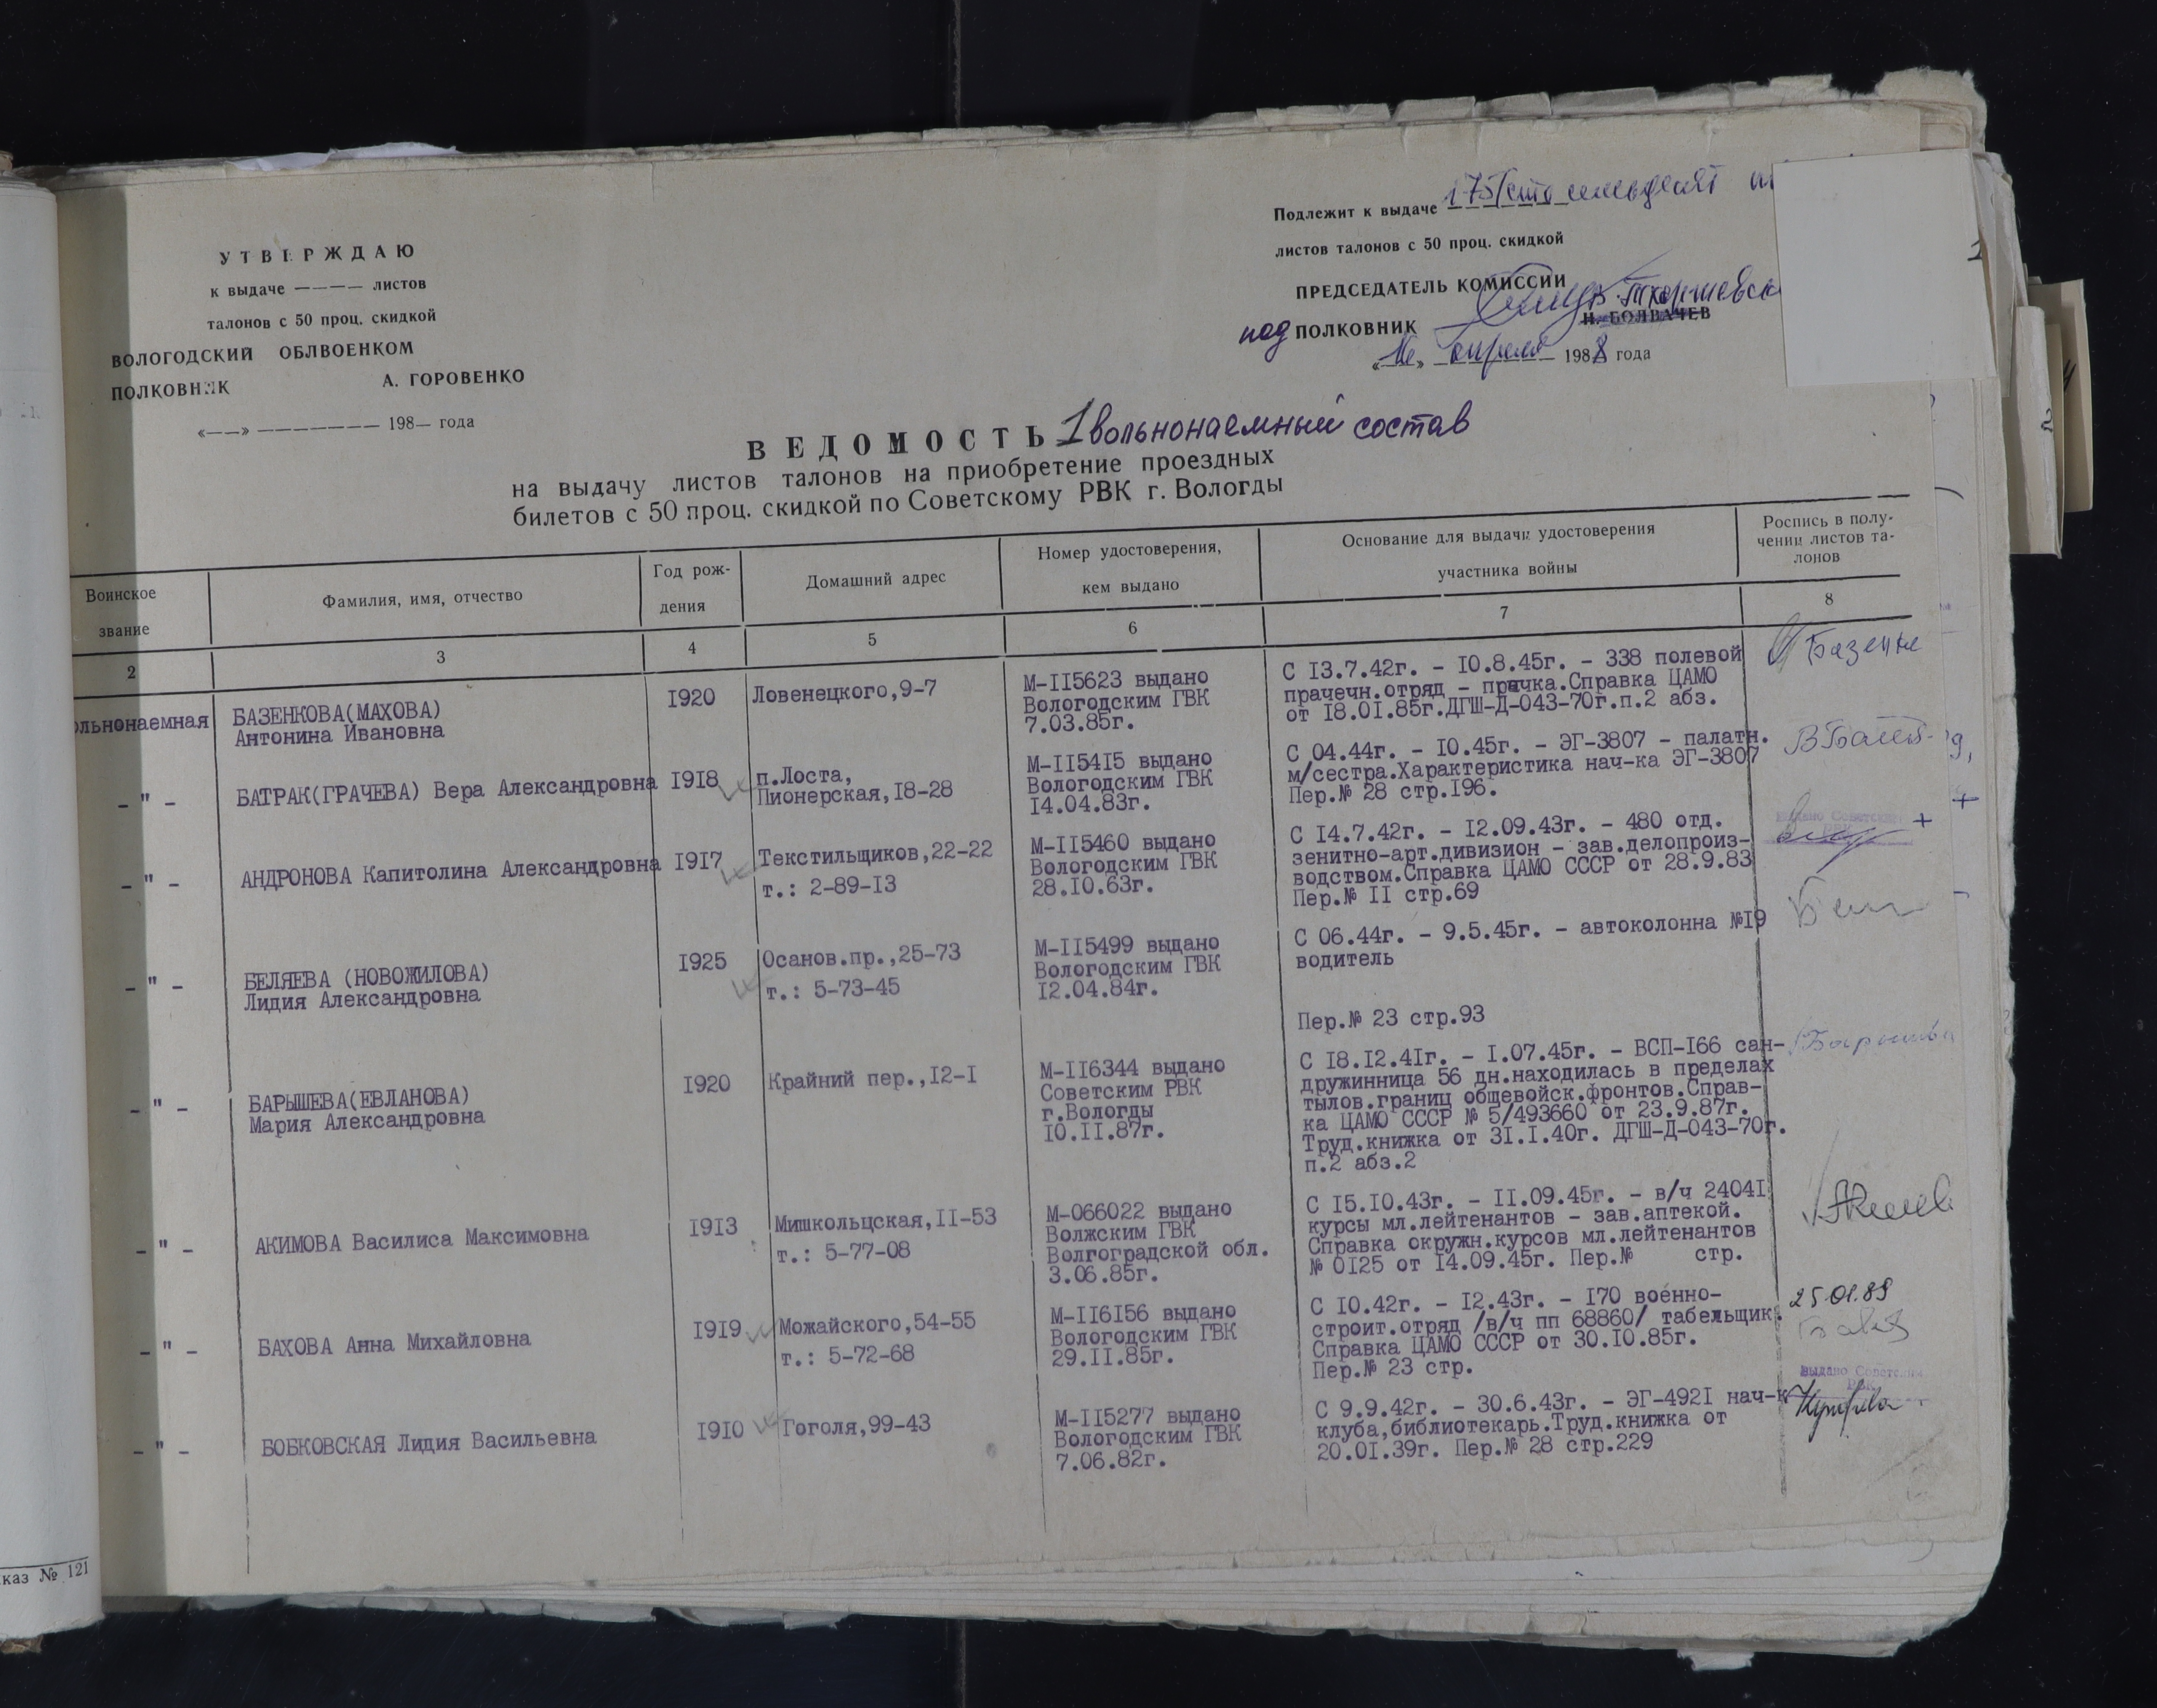 УТВЕРЖДАЮ
к выдаче ———— листов
талонов с 50 проц. скидкой
ВОЛОГОДСКИЙ ОБЛВОЕНКОМ
ПОЛКОВНИК А. ГОРОВЕНКО
«——» ——————— 198— года
Подлежит к выдаче 175/сто семьдесят
листов талонов с 50 проц. скидкой
ПРЕДСЕДАТЕЛЬ КОМИССИИ
под ПОЛКОВНИК
Н. БОЛВАЧЕВ
«16» апреля 1988 года
ВЕДОМОСТЬ 1 вольнонаемный состав
на выдачу листов талонов на приобретение проездных
билетов с 50 проц. скидкой по Советскому РВК г. Вологды
Воинское
звание
Фамилия, имя, отчество
Год рож-
дения
Домашний адрес
Номер удостоверения,
кем выдано
Основание для выдачи удостоверения
участника войны
Роспись в полу-
чении листов та-
лонов
2 3 4 5 6 7 8
ольнонаемная
БАЗЕНКОВА(МАХОВА)
Антонина Ивановна
1920
Ловенецкого,9-7
М-115623 выдано
Вологодским ГВК
7.03.85г.
С 13.7.42г. - 10.8.45г. - 338 полевой
прачечн.отряд - прачка.Справка ЦАМО
от 18.01.85г.ДГШ-Д-043-70г.п.2 абз.
- " -
БАТРАК(ГРАЧЕВА) Вера Александровна
1918
п.Лоста,
Пионерская,18-28
М-115415 выдано
Вологодским ГВК
14.04.83г.
С 04.44г. - 10.45г. - ЭГ-3807 - палатн.
м/сестра.Характеристика нач-ка ЭГ-3807
Пер.№ 28 стр.196.
- " -
АНДРОНОВА Капитолина Александровна
1917
Текстильщиков,22-22
т.: 2-89-13
М-115460 выдано
Вологодским ГВК
28.10.63г.
С 14.7.42г. - 12.09.43г. - 480 отд.
зенитно-арт.дивизион - зав.делопроиз-
водством.Справка ЦАМО СССР от 28.9.83
Пер.№ 11 стр.69
+
- " -
БЕЛЯЕВА (НОВОЖИЛОВА)
Лидия Александровна
1925
Осанов.пр.,25-73
т.: 5-73-45
М-115499 выдано
Вологодским ГВК
12.04.84г.
С 06.44г. - 9.5.45г. - автоколонна №19
водитель
Пер.№ 23 стр.93
- " -
БАРЫШЕВА(ЕВЛАНОВА)
Мария Александровна
1920
Крайний пер.,12-1
М-116344 выдано
Советским РВК
г.Вологды
10.11.87г.
С 18.12.41г. - 1.07.45г. - ВСП-166 сан-
дружинница 56 дн.находилась в пределах
тылов.границ общевойск.фронтов.Справ-
ка ЦАМО СССР № 5/493660 от 23.9.87г.
Труд.книжка от 31.1.40г. ДГШ-Д-043-70г.
п.2 абз.2
- " -
АКИМОВА Василиса Максимовна
1913
Мишкольцская,11-53
т.: 5-77-08
М-066022 выдано
Волжским ГВК
Волгоградской обл.
3.06.85г.
С 15.10.43г. - 11.09.45г. - в/ч 24041
курсы мл.лейтенантов - зав.аптекой.
Справка окружн.курсов мл.лейтенантов
№ 0125 от 14.09.45г. Пер.№ стр.
- " -
БАХОВА Анна Михайловна
1919
Можайского,54-55
т.: 5-72-68
М-116156 выдано
Вологодским ГВК
29.11.85г.
С 10.42г. - 12.43г. - 170 военно-
строит.отряд /в/ч пп 68860/ табельщик.
Справка ЦАМО СССР от 30.10.85г.
Пер.№ 23 стр.
25.01.89
- " -
БОБКОВСКАЯ Лидия Васильевна
1910
Гоголя,99-43
М-115277 выдано
Вологодским ГВК
7.06.82г.
С 9.9.42г. - 30.6.43г. - ЭГ-4921 нач-к
клуба,библиотекарь.Труд.книжка от
20.01.39г. Пер.№ 28 стр.229
каз № 121